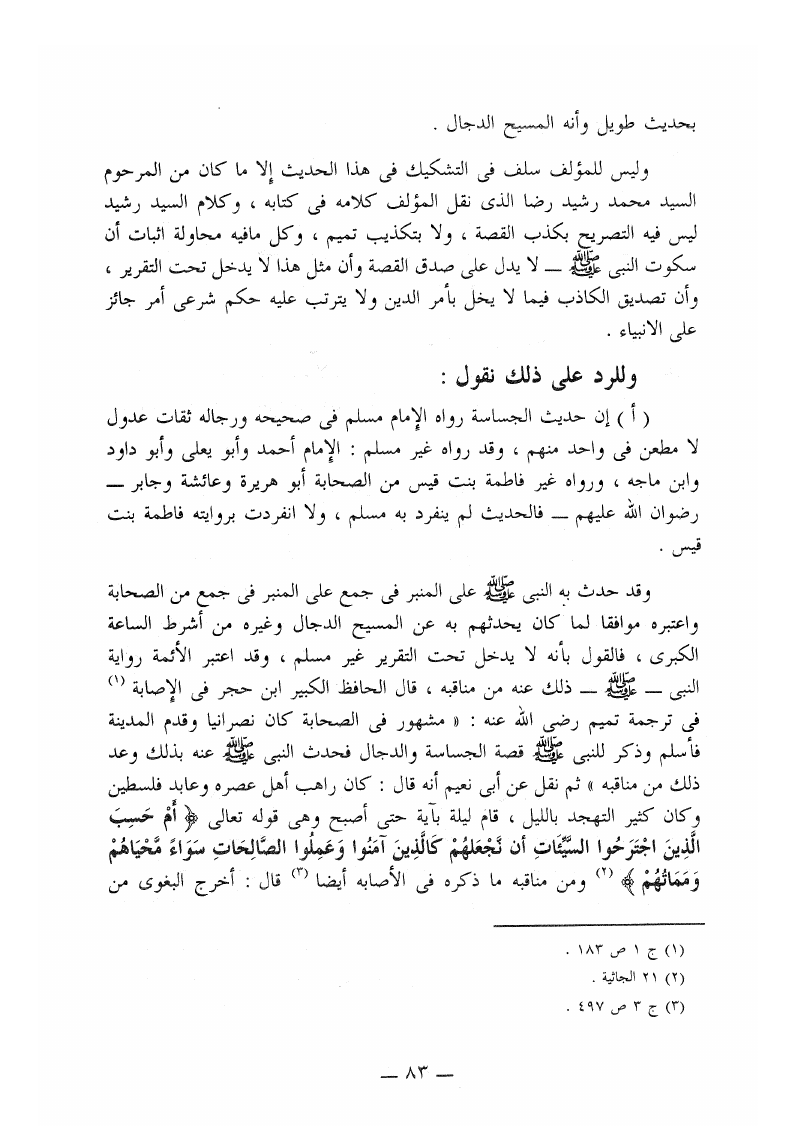 بحديث طويل وأنه المسيح الدجال .
وليس للمؤلف سلف فى التشكيك فى هذا الحديث إلا ما كان من المرحوم
السيد محمد رشيد رضا الذى نقل المؤلف كلامه فى كتابه ، وكلام السيد رشيد
ليس فيه التصريح بكذب القصة ، ولا بتكذيب تميم ، وكل مافيه محاولة اثبات أن
سكوت النبى ﷺ — لا يدل على صدق القصة وأن مثل هذا لا يدخل تحت التقرير ،
وأن تصديق الكاذب فيما لا يخل بأمر الدين ولا يترتب عليه حكم شرعى أمر جائز
على الانبياء .
وللرد على ذلك نقول :
( أ ) إن حديث الجساسة رواه الإمام مسلم فى صحيحه ورجاله ثقات عدول
لا مطعن فى واحد منهم ، وقد رواه غير مسلم : الإمام أحمد وأبو يعلى وأبو داود
وابن ماجه ، ورواه غير فاطمة بنت قيس من الصحابة أبو هريرة وعائشة وجابر —
رضوان الله عليهم — فالحديث لم ينفرد به مسلم ، ولا انفردت بروايته فاطمة بنت
قيس .
وقد حدث به النبى ﷺ على المنبر فى جمع على المنبر فى جمع من الصحابة
واعتبره موافقا لما كان يحدثهم به عن المسيح الدجال وغيره من أشرط الساعة
الكبرى ، فالقول بأنه لا يدخل تحت التقرير غير مسلم ، وقد اعتبر الأئمة رواية
النبى — ﷺ — ذلك عنه من مناقبه ، قال الحافظ الكبير ابن حجر فى الإصابة (١)
فى ترجمة تميم رضى الله عنه : « مشهور فى الصحابة كان نصرانيا وقدم المدينة
فأسلم وذكر للنبى ﷺ قصة الجساسة والدجال فحدث النبى ﷺ عنه بذلك وعد
ذلك من مناقبه » ثم نقل عن أبى نعيم أنه قال : كان راهب أهل عصره وعابد فلسطين
وكان كثير التهجد بالليل ، قام ليلة بآية حتى أصبح وهى قوله تعالى ﴿ أَمْ حَسِبَ
الَّذِينَ اجْتَرَحُوا السَّيِّئَاتِ أن نَّجْعَلَهُمْ كَالَّذِينَ آمَنُوا وَعَمِلُوا الصَّالِحَاتِ سَوَاءً مَّحْيَاهُمْ
وَمَمَاتُهُمْ ﴾ (٢) ومن مناقبه ما ذكره فى الأصابه أيضا (٣) قال : أخرج البغوى من
(١) ج ١ ص ١٨٣ .
(٢) ٢١ الجاثية .
(٣) ج ٣ ص ٤٩٧ .
— ٨٣ —